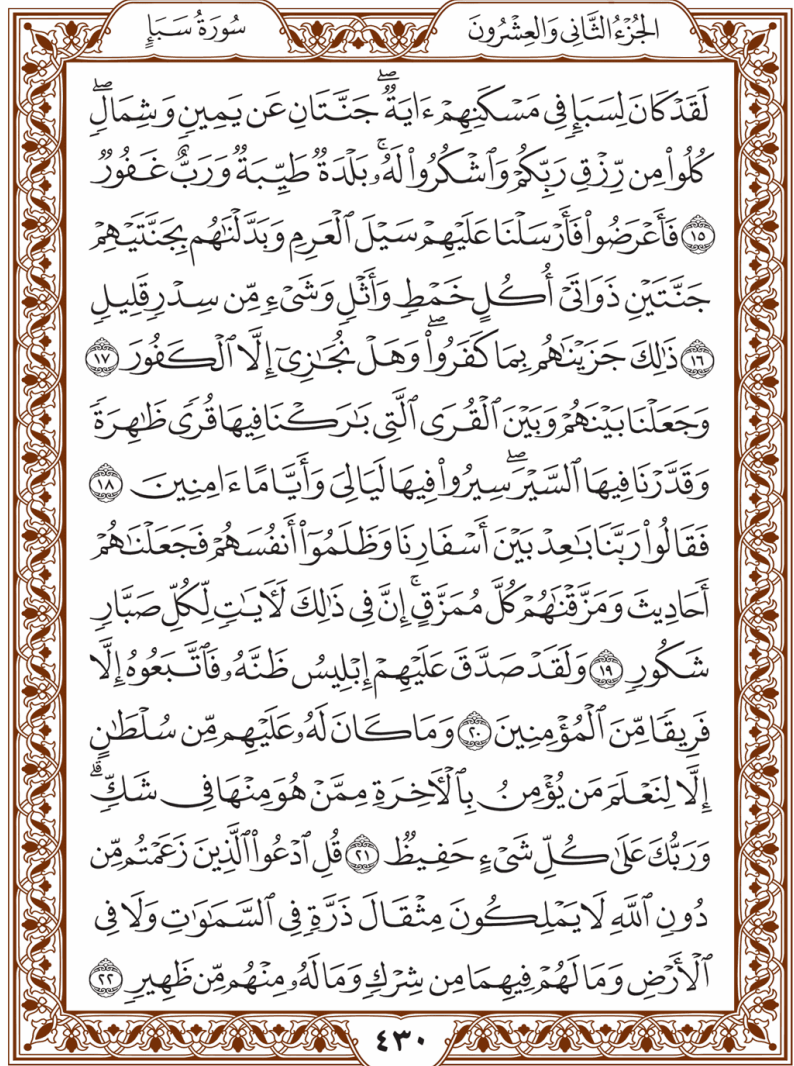 الجُزْءُ الثَّانِي وَالعِشْرُونَ
سُورَةُ سَبَإٍ
لَقَدۡ كَانَ لِسَبَإٖ فِي مَسۡكَنِهِمۡ ءَايَةٞۖ جَنَّتَانِ عَن يَمِينٖ وَشِمَالٖۖ
كُلُواْ مِن رِّزۡقِ رَبِّكُمۡ وَٱشۡكُرُواْ لَهُۥۚ بَلۡدَةٞ طَيِّبَةٞ وَرَبٌّ غَفُورٞ
١٥ فَأَعۡرَضُواْ فَأَرۡسَلۡنَا عَلَيۡهِمۡ سَيۡلَ ٱلۡعَرِمِ وَبَدَّلۡنَٰهُم بِجَنَّتَيۡهِمۡ
جَنَّتَيۡنِ ذَوَاتَيۡ أُكُلٍ خَمۡطٖ وَأَثۡلٖ وَشَيۡءٖ مِّن سِدۡرٖ قَلِيلٖ
١٦ ذَٰلِكَ جَزَيۡنَٰهُم بِمَا كَفَرُواْۖ وَهَلۡ نُجَٰزِيٓ إِلَّا ٱلۡكَفُورَ ١٧
وَجَعَلۡنَا بَيۡنَهُمۡ وَبَيۡنَ ٱلۡقُرَى ٱلَّتِي بَٰرَكۡنَا فِيهَا قُرٗى ظَٰهِرَةٗ
وَقَدَّرۡنَا فِيهَا ٱلسَّيۡرَۖ سِيرُواْ فِيهَا لَيَالِيَ وَأَيَّامًا ءَامِنِينَ ١٨
فَقَالُواْ رَبَّنَا بَٰعِدۡ بَيۡنَ أَسۡفَارِنَا وَظَلَمُوٓاْ أَنفُسَهُمۡ فَجَعَلۡنَٰهُمۡ
أَحَادِيثَ وَمَزَّقۡنَٰهُمۡ كُلَّ مُمَزَّقٍۚ إِنَّ فِي ذَٰلِكَ لَأٓيَٰتٖ لِّكُلِّ صَبَّارٖ
شَكُورٖ ١٩ وَلَقَدۡ صَدَّقَ عَلَيۡهِمۡ إِبۡلِيسُ ظَنَّهُۥ فَٱتَّبَعُوهُ إِلَّا
فَرِيقٗا مِّنَ ٱلۡمُؤۡمِنِينَ ٢٠ وَمَا كَانَ لَهُۥ عَلَيۡهِم مِّن سُلۡطَٰنٍ
إِلَّا لِنَعۡلَمَ مَن يُؤۡمِنُ بِٱلۡأٓخِرَةِ مِمَّنۡ هُوَ مِنۡهَا فِي شَكّٖۗ
وَرَبُّكَ عَلَىٰ كُلِّ شَيۡءٍ حَفِيظٞ ٢١ قُلِ ٱدۡعُواْ ٱلَّذِينَ زَعَمۡتُم مِّن
دُونِ ٱللَّهِ لَا يَمۡلِكُونَ مِثۡقَالَ ذَرَّةٖ فِي ٱلسَّمَٰوَٰتِ وَلَا فِي
ٱلۡأَرۡضِ وَمَا لَهُمۡ فِيهِمَا مِن شِرۡكٖ وَمَا لَهُۥ مِنۡهُم مِّن ظَهِيرٖ ٢٢
٤٣٠